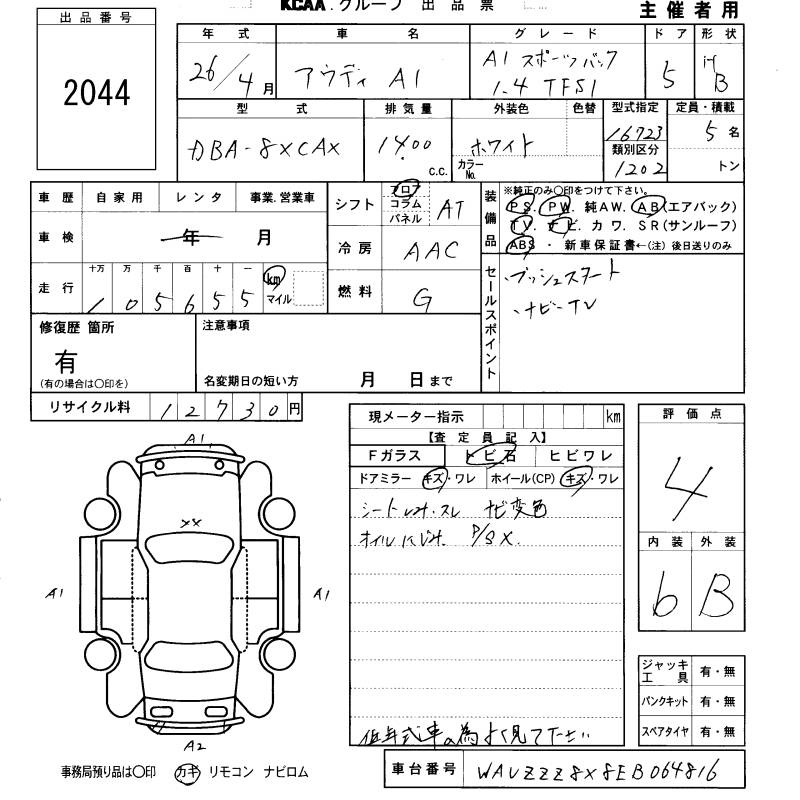 KCAA.グループ 出品票
主催者用
出品番号
2044
年式 車名 グレード ドア 形状
26/4月 アウディ A1 A1 スポーツバック 5 HB
1.4 TFSI
型式 排気量 外装色 色替 型式指定 定員・積載
DBA-8XCAX 1400 c.c. ホワイト 16723 5名
カラーNo. 類別区分 1202 トン
車歴 自家用 レンタ 事業.営業車
車検 年 月
走行 十万 万 千 百 十 一
1 0 5 6 5 5 km マイル
シフト フロア コラム パネル AT
冷房 AAC
燃料 G
装備品 ※純正のみ〇印をつけて下さい。
PS. PW. 純AW. AB(エアバック)
TV. ナビ. カワ. SR(サンルーフ)
ABS ・ 新車保証書←(注) 後日送りのみ
セールスポイント
・プッシュスタート
・ナビ-TV
修復歴 箇所
有
(有の場合は〇印を)
注意事項
名変期日の短い方 月 日まで
リサイクル料 12730円
現メーター指示 km
【査定員記入】
Fガラス トビ石 ヒビワレ
ドアミラー キズ・ワレ ホイール(CP) キズ・ワレ
シートシミ・スレ ナビ変色
オイルにじみ. P/S X.
低年式車の為よく見て下さい
評価点
4
内装 外装
6 B
A1
XX
A1
A1
A2
ジャッキ工具 有・無
パンクキット 有・無
スペアタイヤ 有・無
事務局預り品は〇印 カギ リモコン ナビロム
車台番号 WAUZZZ8X8EB064816